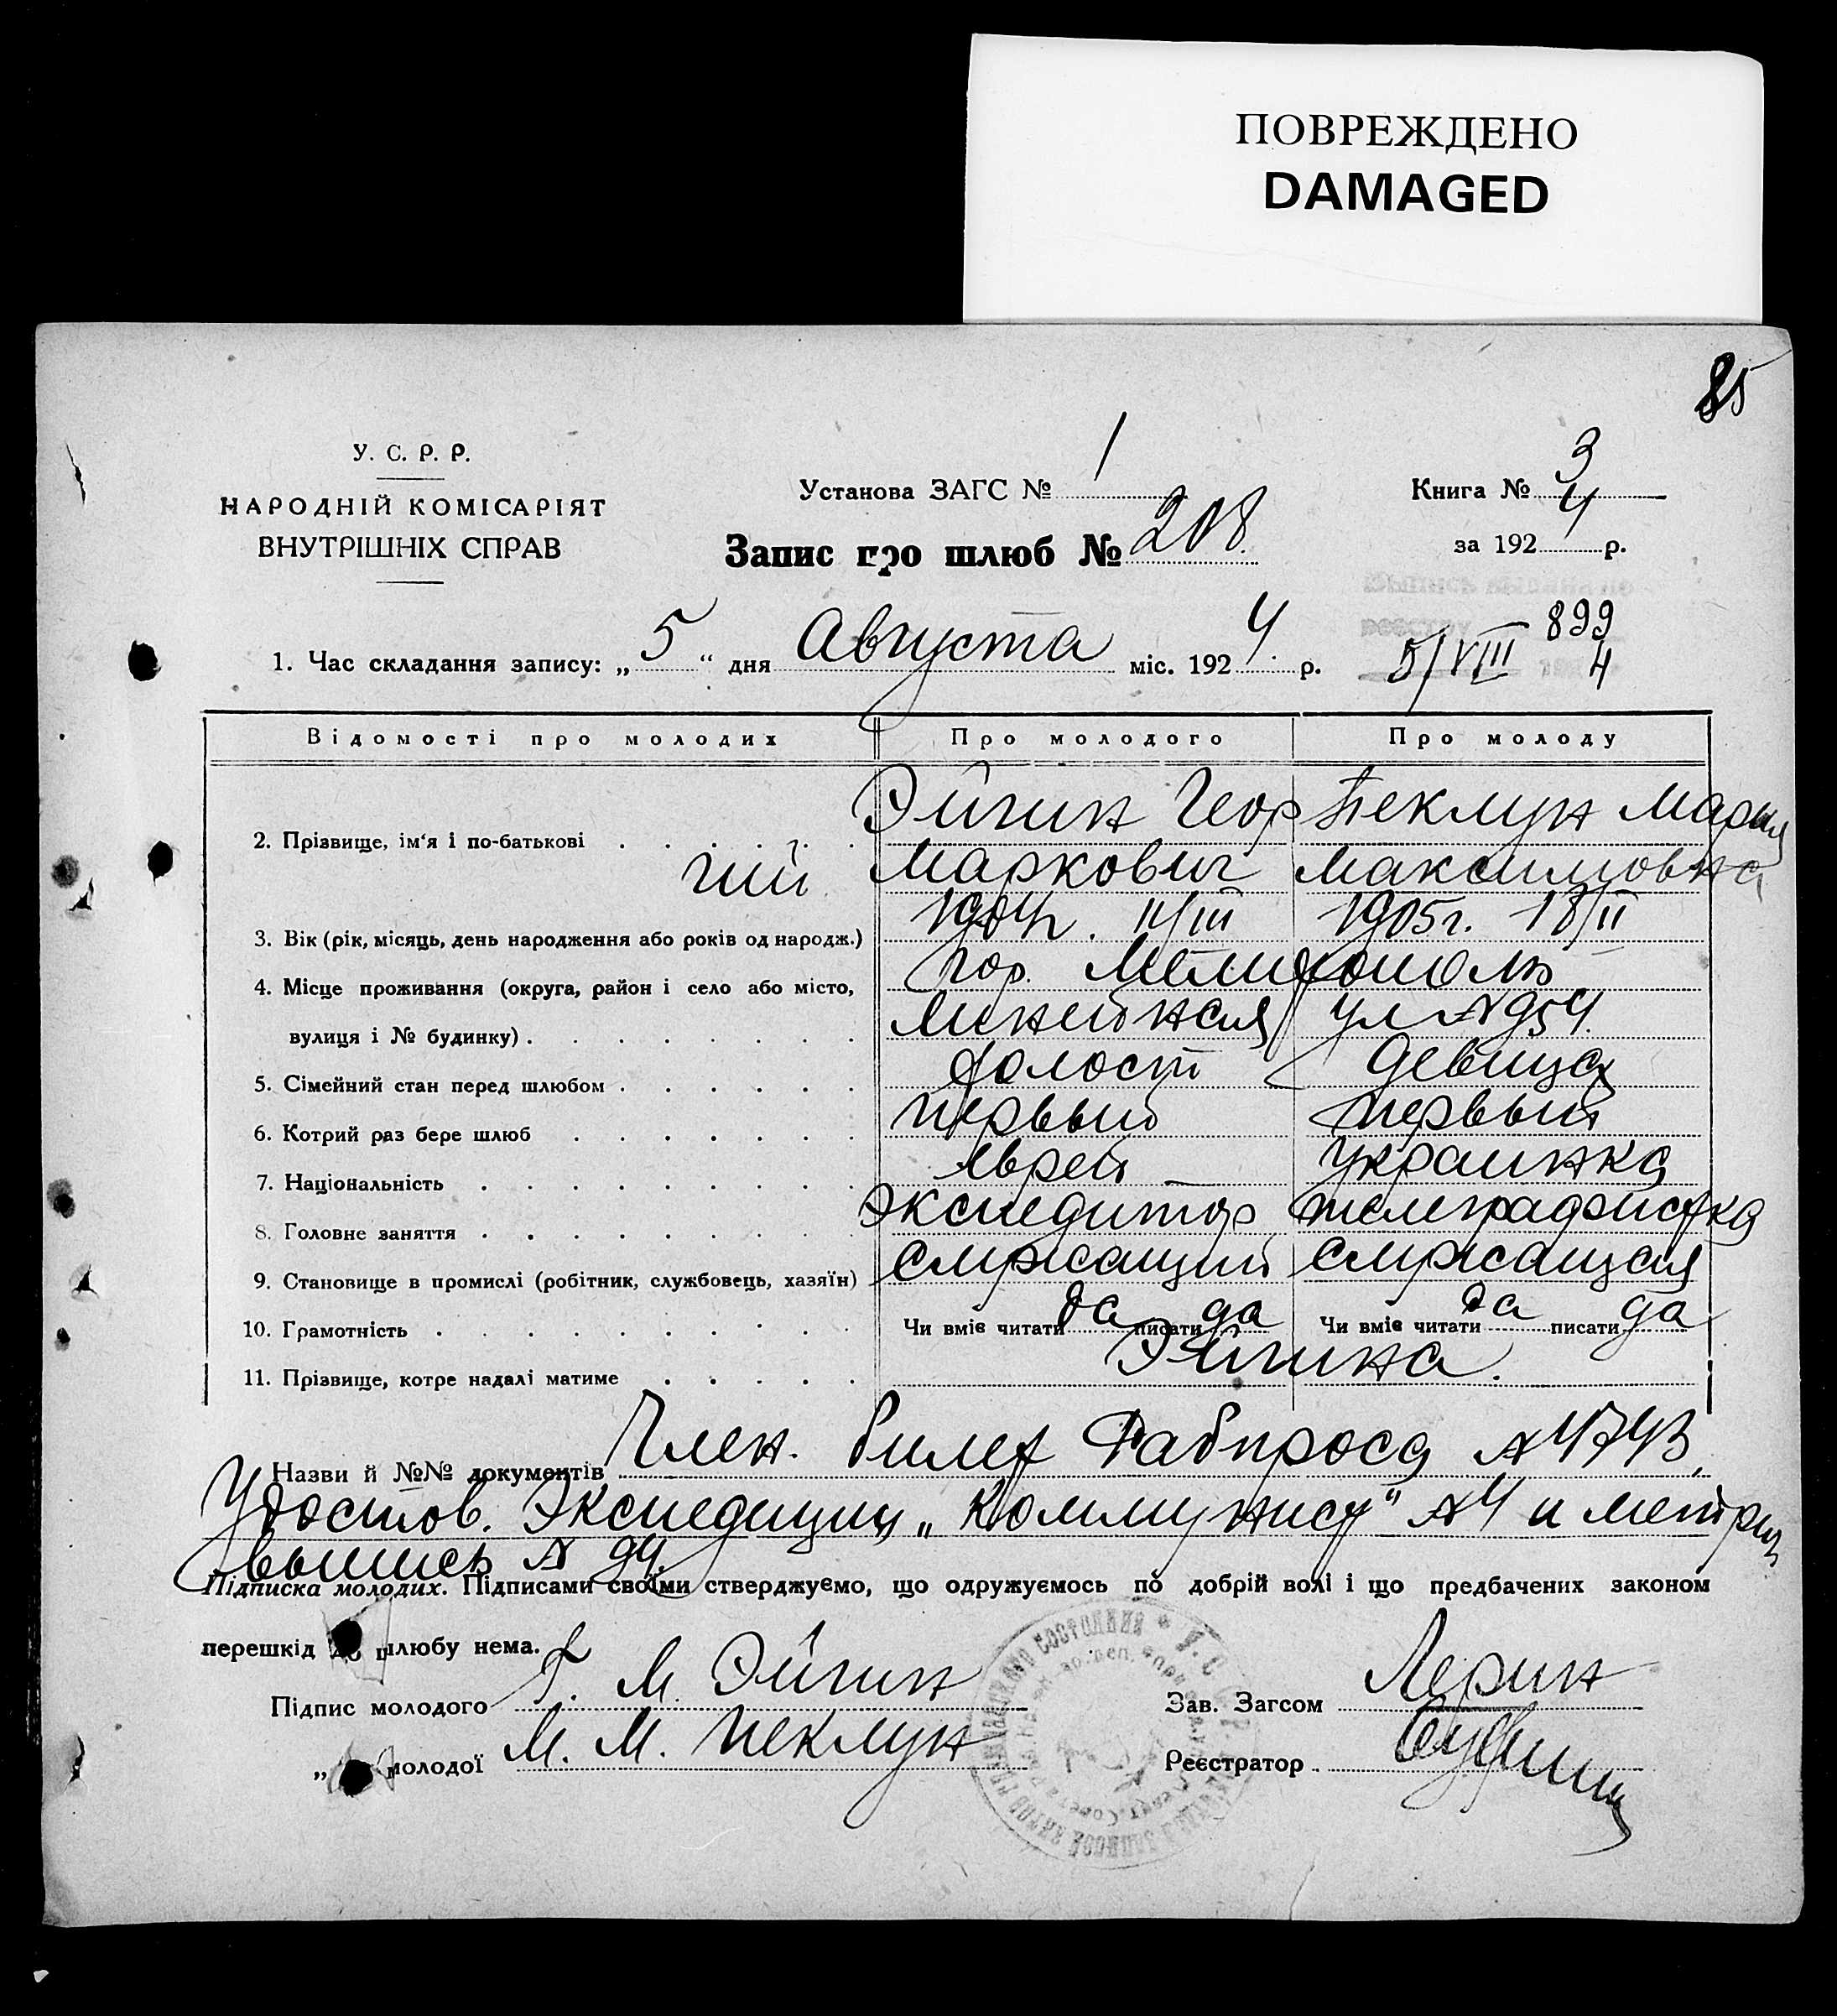 ПОВРЕЖДЕНО
DAMAGED
85
У. С. Р. Р.
НАРОДНІЙ КОМІСАРІЯТ
ВНУТРІШНІХ СПРАВ
Установа ЗАГС № 1
Книга № 3
за 1924 р.
Запис про шлюб № 208.
899
1. Час складання запису: „5“ дня Августа міс. 1924. р.
5/VIII 4
Відомості про молодих Про молодого Про молоду
2. Прізвище, ім'я і по-батькові Эйгин Геор Пеклун Мария
гий Маркович Максимовна
3. Вік (рік, місяць, день народження або років од народж.) 1904г. 11/III 1905г. 18/II
4. Місце проживання (округа, район і село або місто, гор. Мелитополь
вулиця і № будинку) Линейная ул №954.
5. Сімейний стан перед шлюбом холост девица
6. Котрий раз бере шлюб первый первый
7. Національність еврей украинка
8. Головне заняття экспедитор телеграфистка
9. Становище в промислі (робітник, службовець, хазяїн) служащий служащая
10. Грамотність Чи вміє читати да писати да Чи вміє читати да писати да
11. Прізвище, котре надалі матиме Эйгина.
Назви й №№ документів Член. билет Рабпроса №4743,
Удостов. Экспедиции „Коммунист" №4 и метрич.
выпись № 94.
Підписка молодих. Підписами своїми стверджуємо, що одружуємось по добрій волі і що предбачених законом
перешкід до шлюбу нема.
Підпис молодого Г. М. Эйгин
Зав. Загсом Лерин
„ молодої М. М. Пеклун
Реєстратор